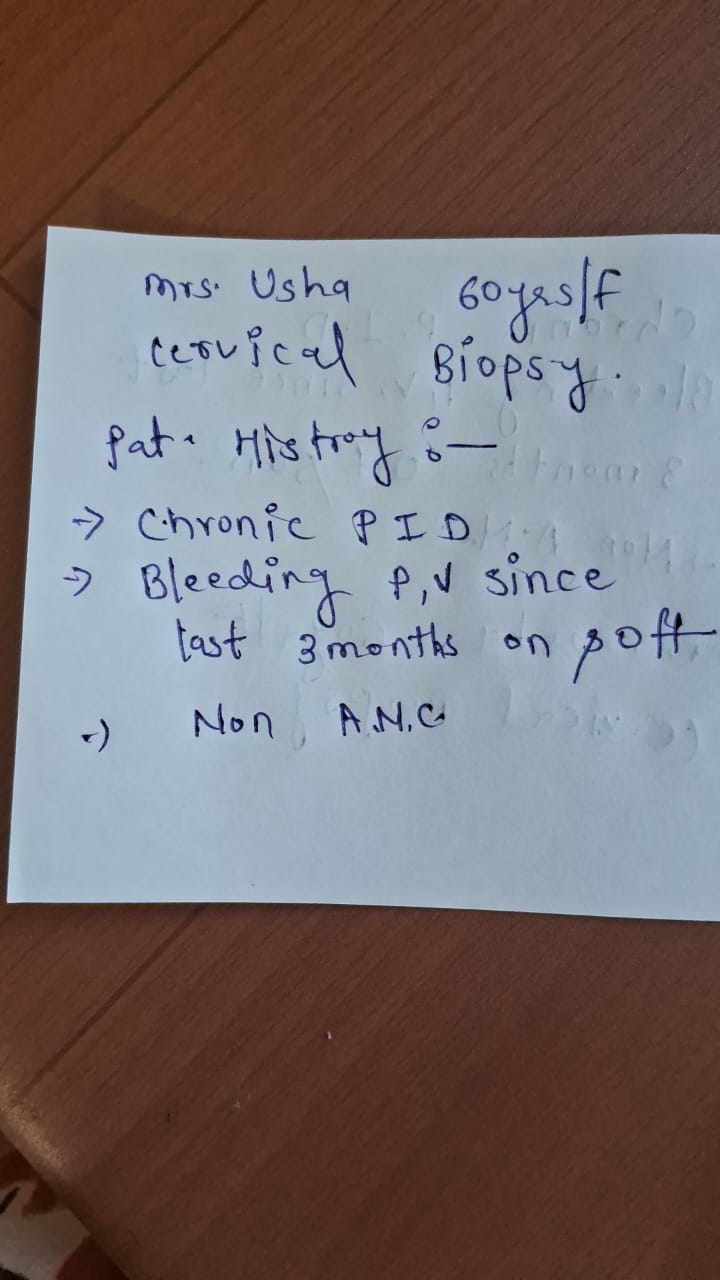 Mrs. Usha 60yrs/F
Cervical Biopsy.
Pat. Histroy :-
→ Chronic PID
→ Bleeding P,V since
last 3 months on & off
→ Non A.N.C